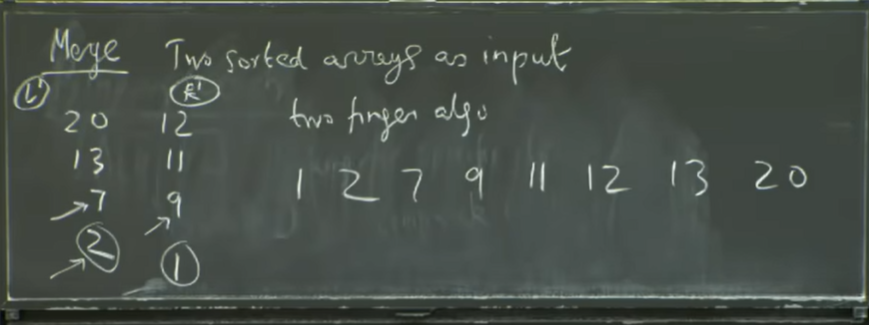 Merge Two sorted arrays as input
L' R'
two finger algo
20 12
13 11
7 9
2 1
1 2 7 9 11 12 13 20